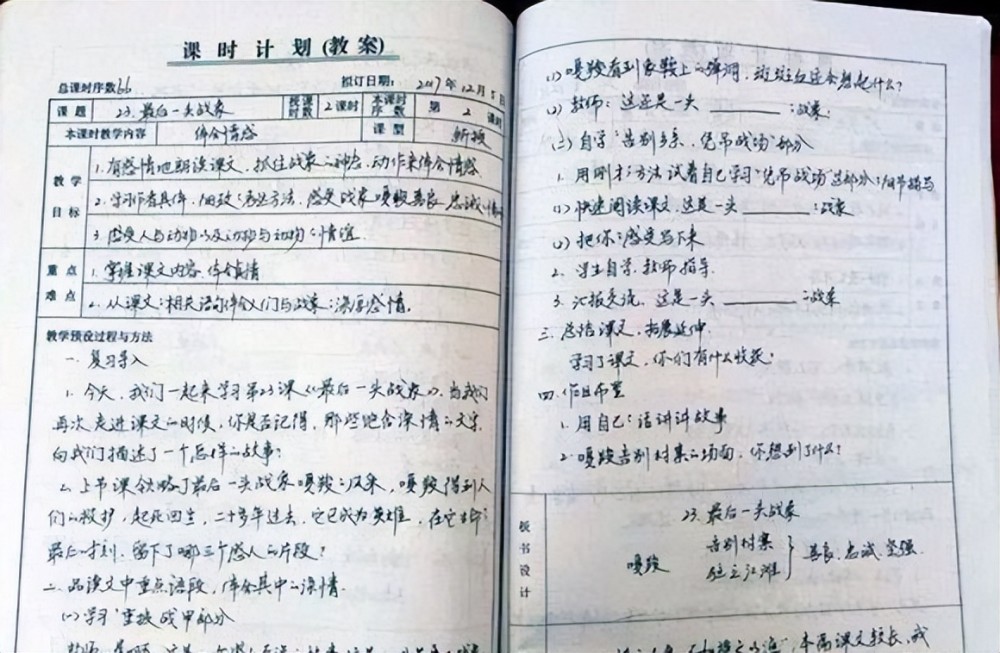 课时计划(教案)
总课时序数66 拟订日期: 2017年12月5日
课题 23.最后一头战象 授课时数 2课时 本课时序数 第2课时
本课时教学内容 体会情感 课型 新授
教学目标
1.有感情地朗读课文,抓住战象的神态、动作来体会情感.
2.学习作者具体、细致的表达方法,感受战象嘎羧善良、忠诚
3.感受人与动物以及动物与动物的情谊.
重点难点
1.掌握课文内容,体会真情
2.从课文的相关语句体会人们与战象的深厚感情.
教学预设过程与方法
一.复习导入
1.今天,我们一起来学习第23课《最后一头战象》,当我们
再次走进课文的时候,你是否记得,那些饱含深情的文字
向我们描述了一个怎样的故事?
2.上节课领略了最后一头战象嘎羧的风采,嘎羧得到人
们的救护,起死回生,二十多年过去,它已成为英雄,在它生命的
最后时刻,留下了哪三个感人的片段?
二.品读文中重点语段,体会其中的深情.
(一)学习"重披战甲部分
(1)嘎羧看到象鞍上的弹洞,斑斑血迹会想起什么?
(2)教师:这还是一头______的战象.
(二)自学"告别乡亲,凭吊战场"部分
1.用刚才的方法试着自己学习"凭吊战场"这部分的细节描写
(1)快速阅读课文,这是一头______的战象
(2)把你的感受写下来
2.学生自学,教师指导.
3.汇报交流,这是一头______的战象
三.总结课文,拓展延伸.
学习了课文,你们有什么收获?
四.作业布置
1.用自己的话讲讲故事
2.嘎羧告别村寨的场面,你想到了什么?
板书设计
23.最后一头战象
告别村寨
嘎羧 } 善良.忠诚.坚强.
伫立江滩
本篇课文较长,我